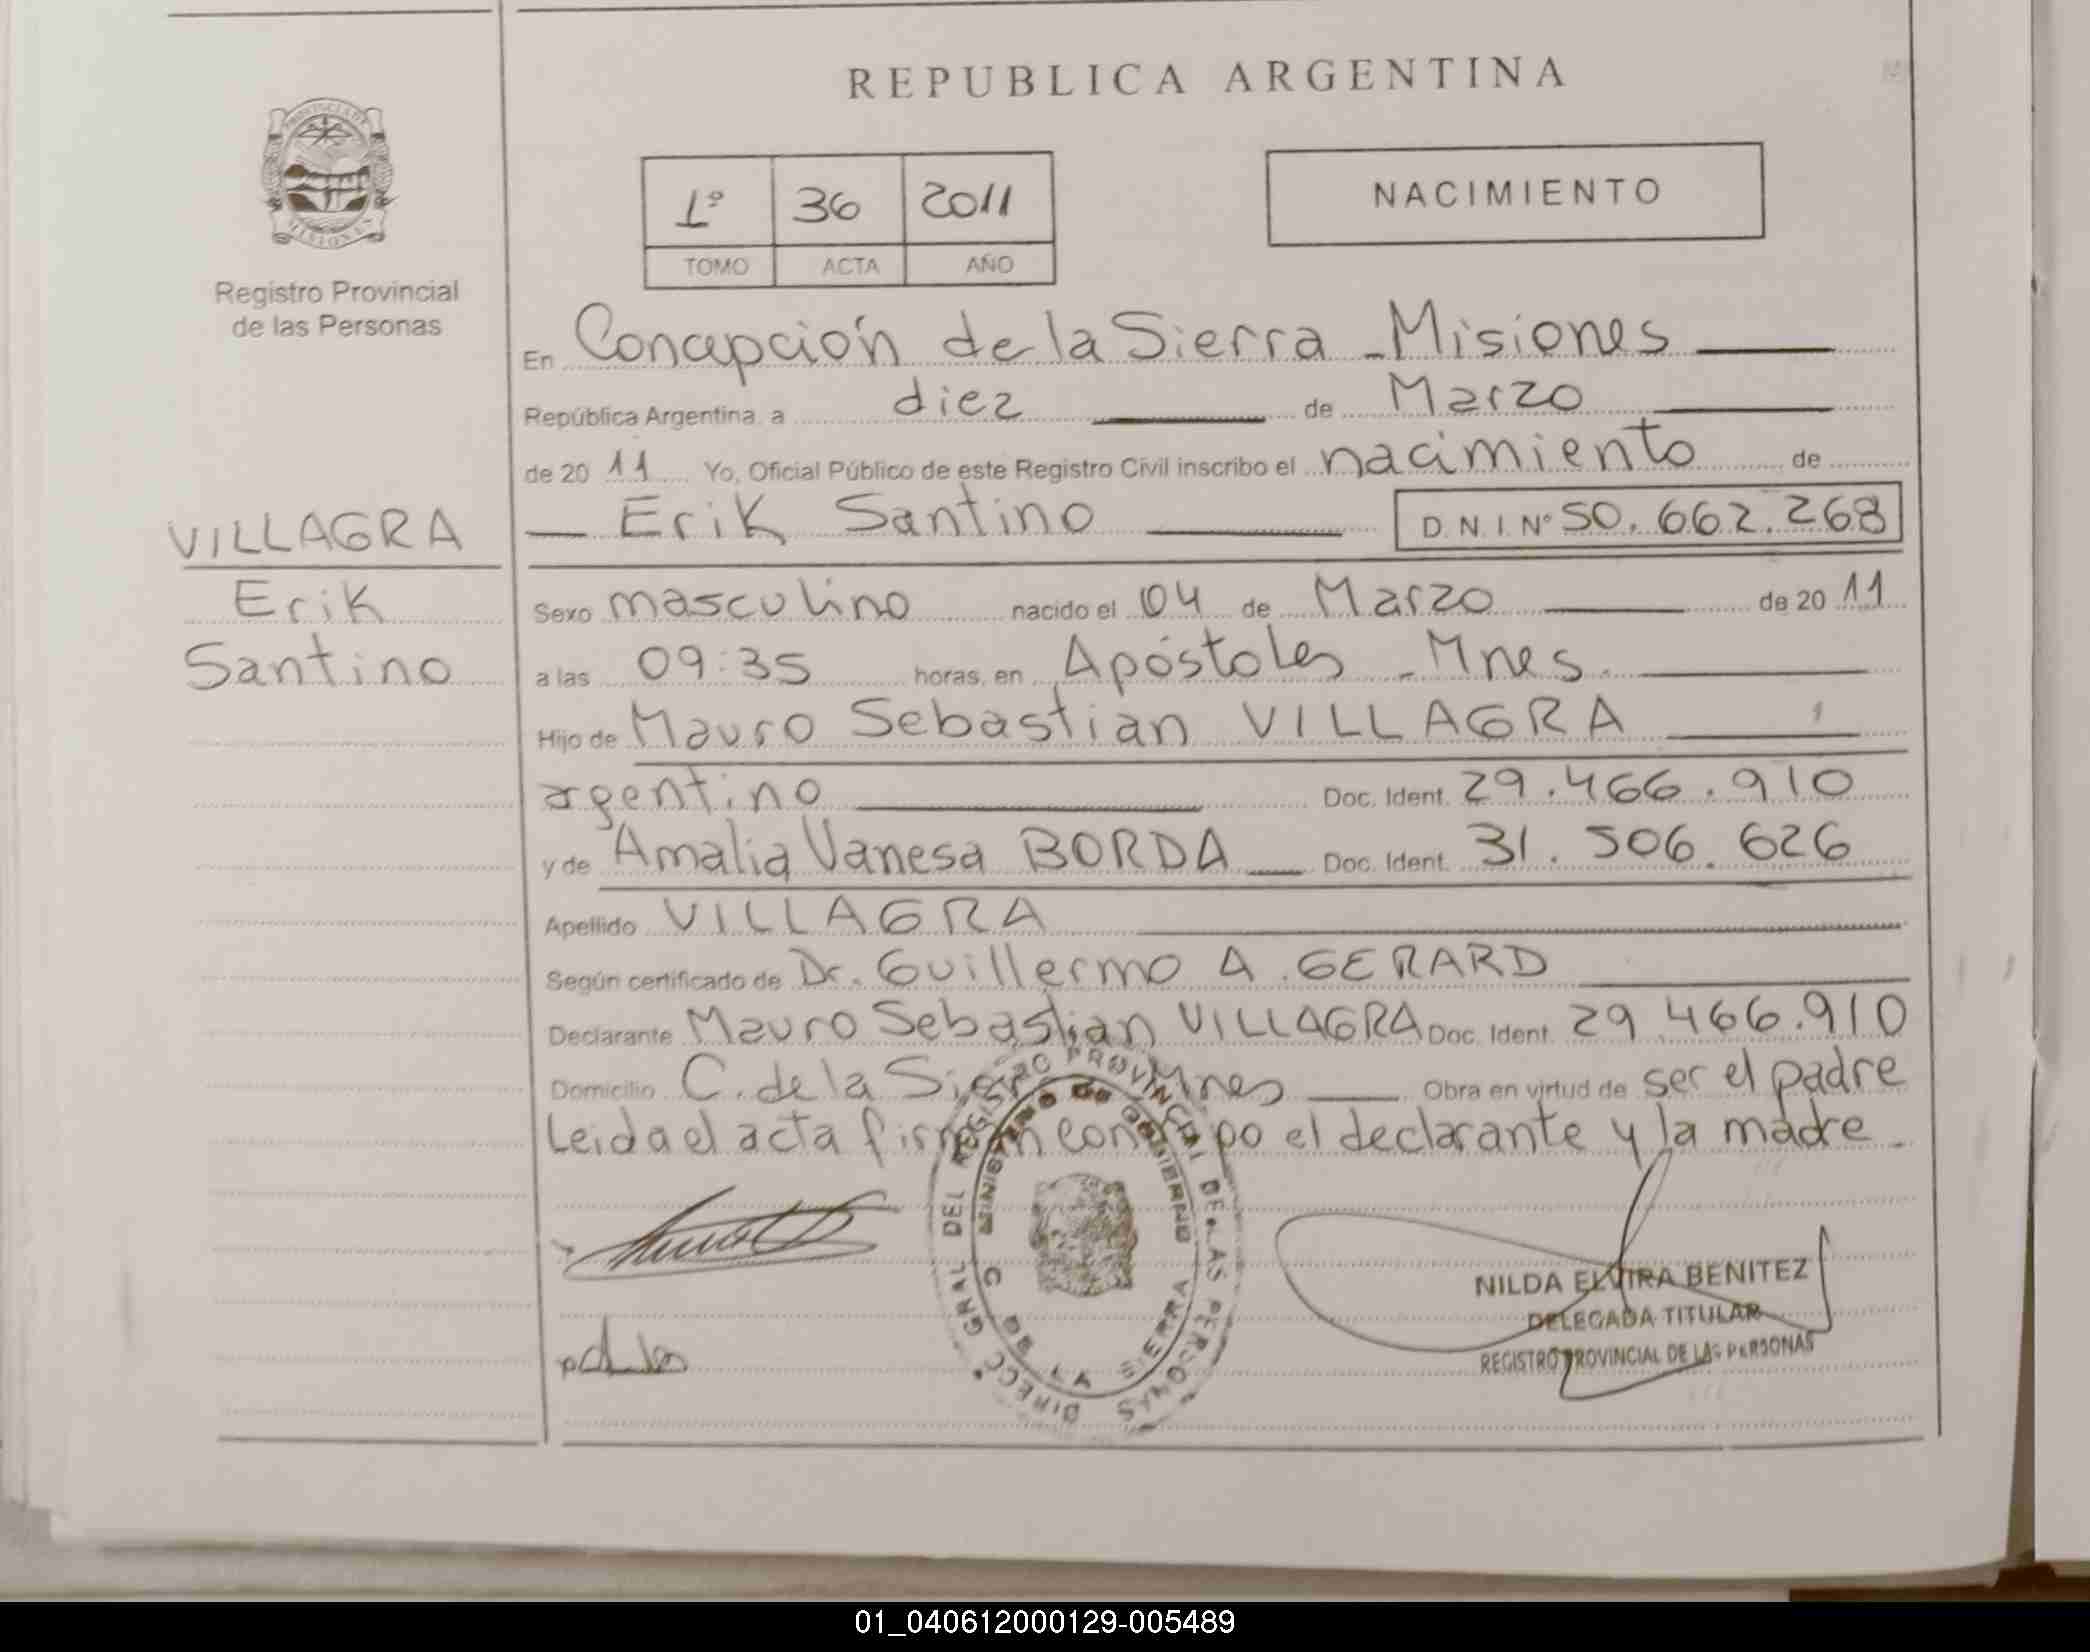 REPUBLICA ARGENTINA
PROVINCIA DE
MISIONES
Registro Provincial
de las Personas
1º 36 2011
TOMO ACTA AÑO
NACIMIENTO
En Concepción de la Sierra - Misiones
República Argentina, a diez de Marzo
de 20 11 Yo, Oficial Público de este Registro Civil inscribo el nacimiento de
Erik Santino D.N.I. Nº 50.662.268
VILLAGRA
Erik
Santino
Sexo masculino nacido el 04 de Marzo de 20 11
a las 09:35 horas, en Apóstoles - Mnes.
Hijo de Mauro Sebastian VILLAGRA
argentino Doc. Ident. 29.466.910
y de Amalia Vanesa BORDA Doc. Ident. 31.506.626
Apellido VILLAGRA
Según certificado de Dr. Guillermo A. GERARD
Declarante Mauro Sebastian VILLAGRA Doc. Ident. 29.466.910
Domicilio C. de la Sierra Mnes Obra en virtud de ser el padre
Leida el acta firman conmigo el declarante y la madre
DIRECC. GRAL DEL REGISTRO PROVINCIAL DE LAS PERSONAS
MINISTERIO DE GOBIERNO
C. DE LA SIERRA
NILDA ELVIRA BENITEZ
DELEGADA TITULAR
REGISTRO PROVINCIAL DE LAS PERSONAS
01_040612000129-005489